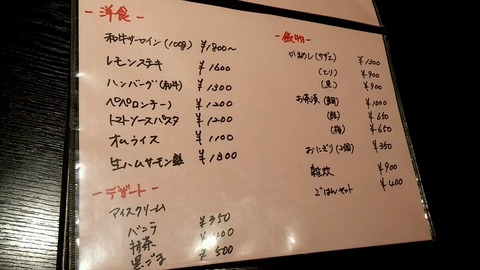 - 洋食 -
和牛サーロイン(100g) ¥1800～
レモンステキ ¥1600
ハンバーグ(和牛) ¥1300
ペペロンチー) ¥1200
トマトソースパスタ ¥1200
オムライス ¥1100
生ハムサーモン ¥1300
- デザート -
アイスクリーム
バニラ ¥350
抹茶 ¥400
黒ごま ¥500
- 飯物 -
かまめし(サザエ) ¥1300
(とり) ¥900
¥900
お茶漬(鯛) ¥1000
(鮭) ¥650
(梅) ¥650
おにぎり(2個) ¥350
雑炊 ¥900
ごはんセット ¥400